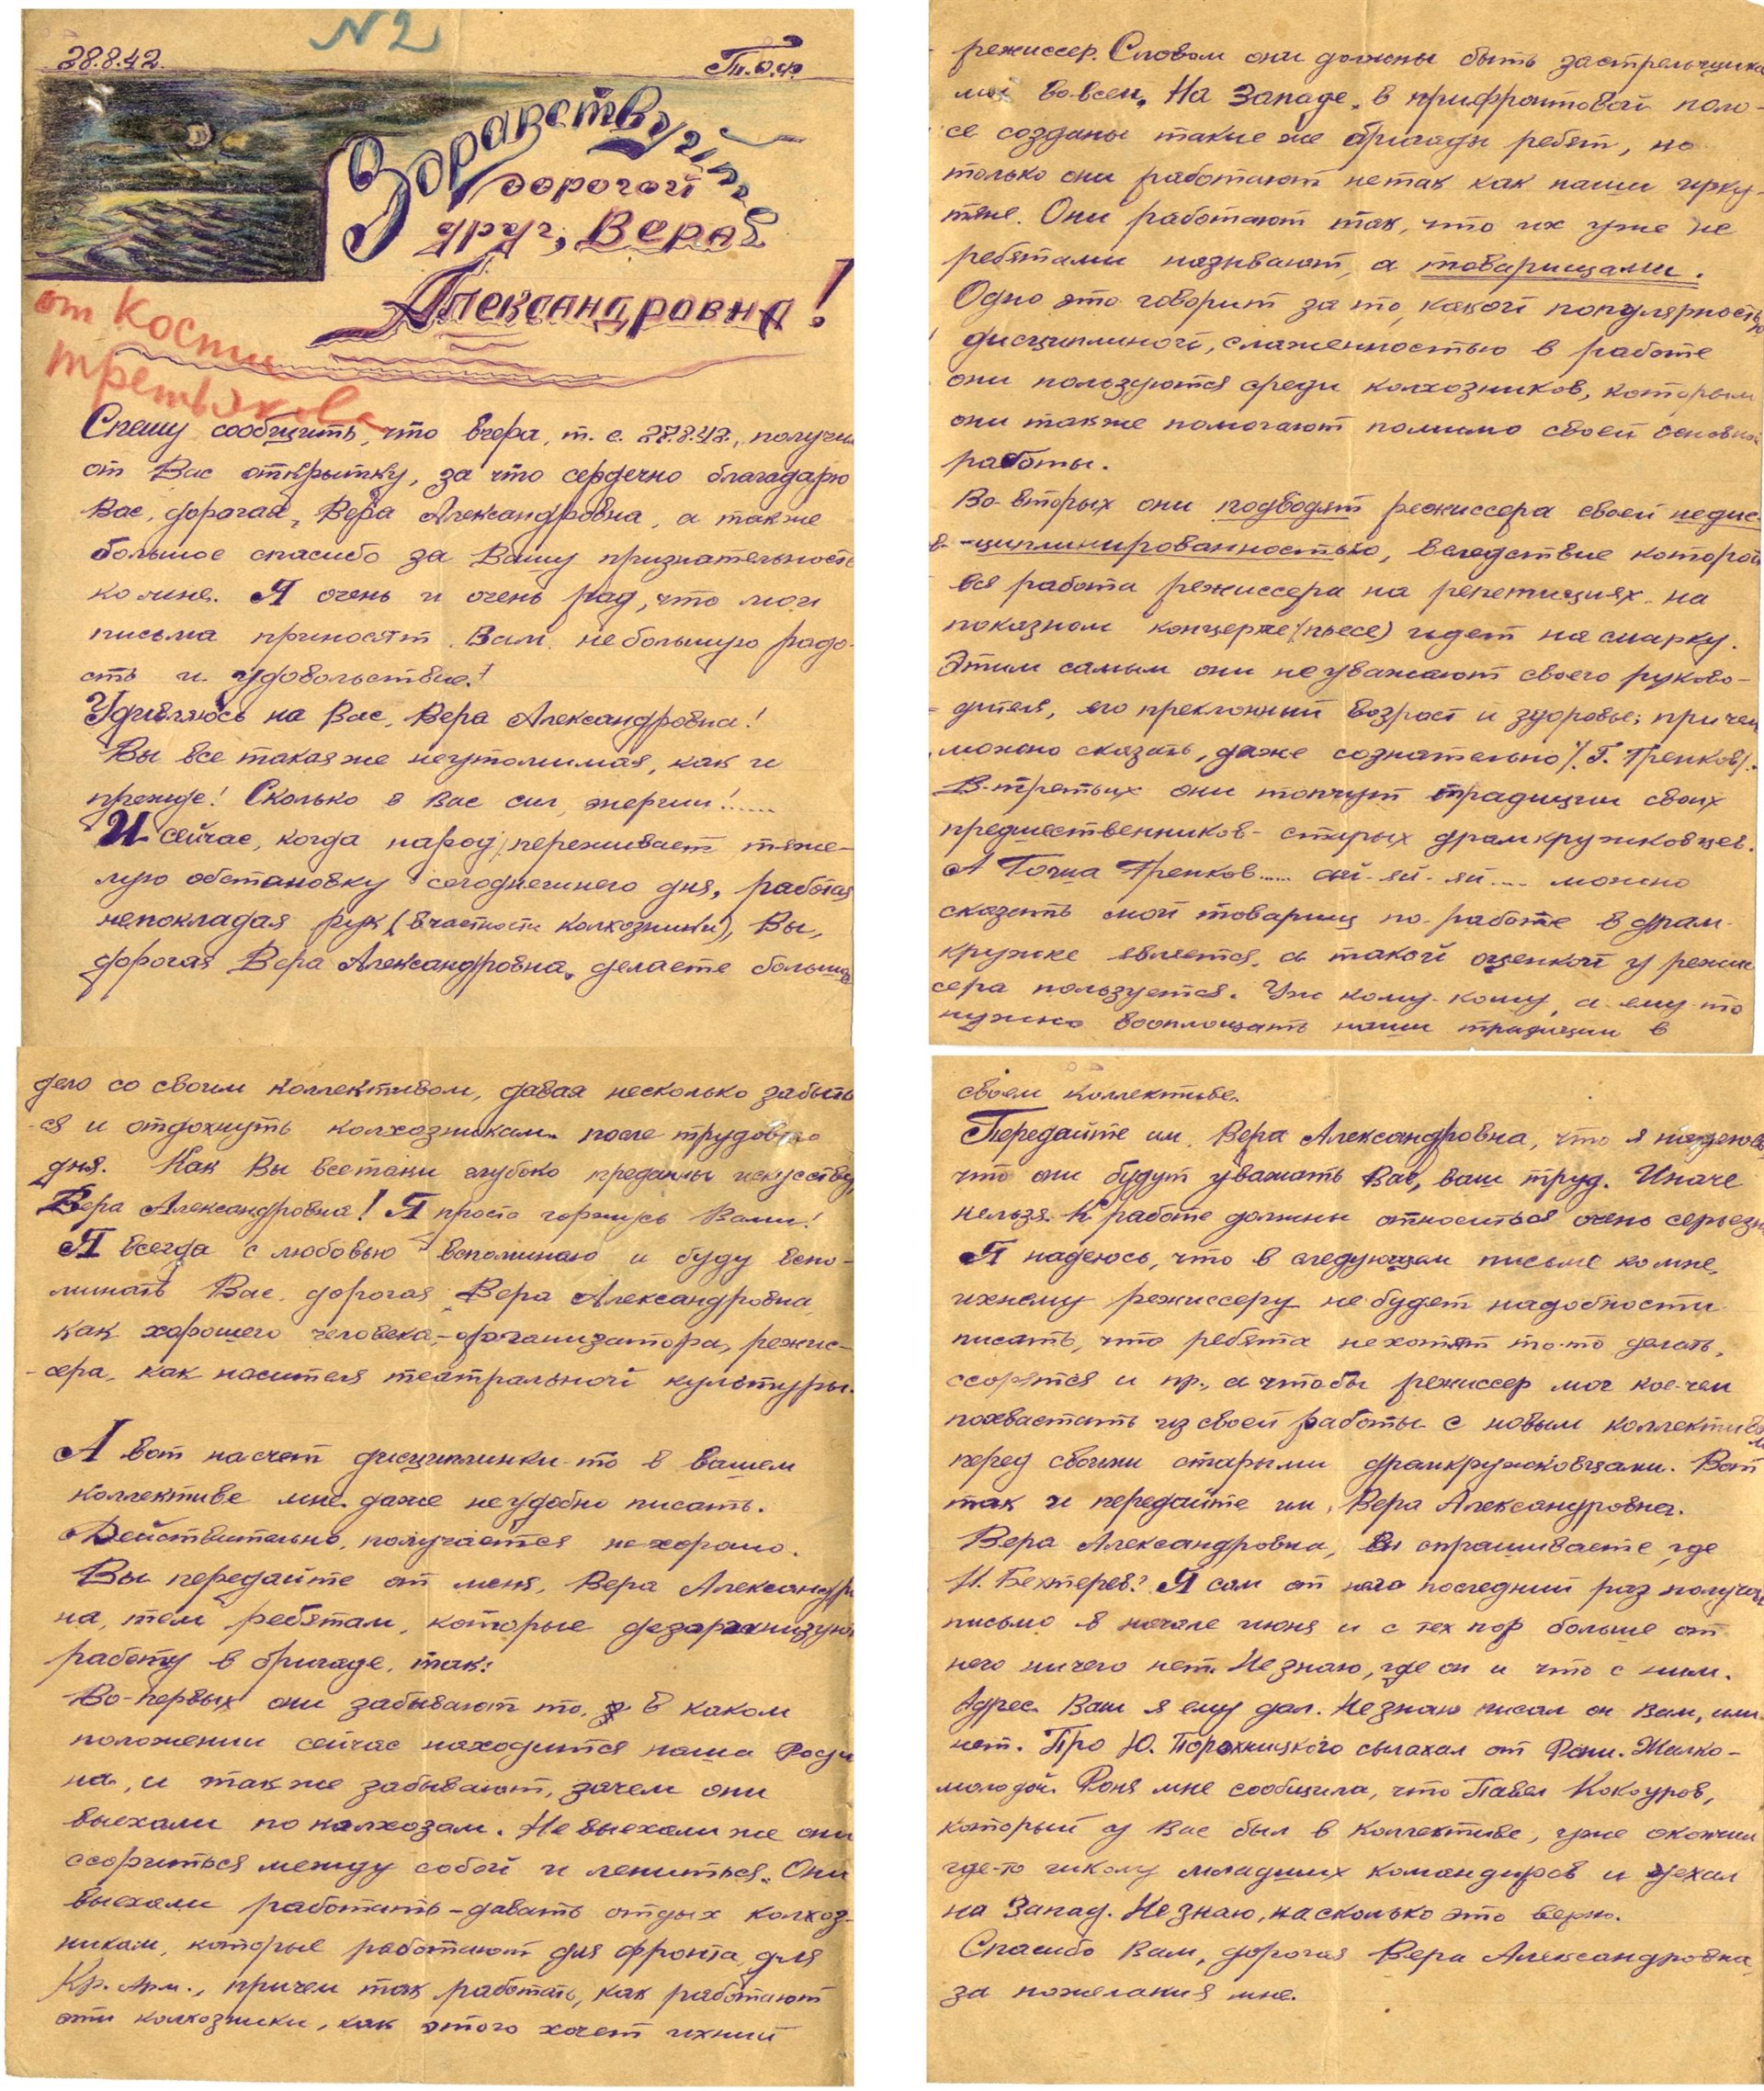 №2
28.8.42.
Т.О.Ф.
Здравствуйте,
дорогой
друг, Вера
Александровна!
от Кости
Третьякова
Спешу сообщить, что вчера, т. е. 27.8.42., получил
от Вас открытку, за что сердечно благодарю
Вас, дорогая, Вера Александровна, а также
большое спасибо за Вашу признательность
ко мне. Я очень и очень рад, что мои
письма приносят Вам небольшую радо-
сть и удовольствие!
Удивляюсь на Вас, Вера Александровна!
Вы все такая же неутомимая, как и
прежде! Сколько в Вас сил, энергии!......
И сейчас, когда народ переживает тяже-
лую обстановку сегоднешнего дня, работая
непокладая рук (в частности колхозники), Вы,
дорогая Вера Александровна, делаете большое
дело со своим коллективом, давая несколько забыть
ся и отдохнуть колхозникам после трудового
дня. Как Вы всетаки глубоко преданы искусству,
Вера Александровна! Я просто горжусь Вами!
Я всегда с любовью вспоминаю и буду вспо-
минать Вас, дорогая Вера Александровна,
как хорошего человека,-организатора, режис-
-сера, как насителя театральной культуры.
А вот насчет дисциплинки-то в вашем
коллективе мне даже неудобно писать.
Действительно, получается нехорошо.
Вы передайте от меня, Вера Александров
на, тем ребятам, которые дезорганизуют
работу в бригаде, так:
Во-первых они забывают то, в каком
положении сейчас находится наша Роди
на, и также забывают, зачем они
выехали по колхозам. Не выехали же они
ссориться между собой и лениться. Они
выехали работать-давать отдых колхоз-
никам, которые работают для фронта, для
Кр. Арм., причем так работать, как работают
эти колхозники, как этого хочет ихний
режиссер. Словом они должны быть застрельщика
ми во всем. На Западе, в прифронтовой поло-
се созданы такие же бригады ребят, но
только они работают нетак как наши ирку-
тяне. Они работают так, что их уже не
ребятами называют, а товарищами.
Одно это говорит за то, какой популярностью
дисциплиной, слаженностью в работе
они пользуются среди колхозников, которым
они также помогают помимо своей основной
работы.
Во-вторых они подводят режиссера своей недис-
-циплинированностью, вследствие которой
вся работа режиссера на репетициях, на
показном концерте (пьесе) идет на смарку.
Этим самым они неуважают своего руково-
дителя, его преклонный возраст и здоровье; причем
можно сказать, даже сознательно /. Г. Тренков/.
В-третьих они топчут традиции своих
предшественников- старых драмкружковцев.
А Гоша Тренков..... ай-яй-яй.... можно
сказать мой товарищ по работе в драм-
кружке является, а такой оценкой у режис
сера пользуется. Уж кому-кому, а ему-то
нужно воплощать наши традиции в
своем коллективе.
Передайте им, Вера Александровна, что я надеюсь,
что они будут уважать Вас, ваш труд. Иначе
нельзя. К работе должны относиться очень серьезно
Я надеюсь, что в следующем письме ко мне,
ихнему режиссеру не будет надобности
писать, что ребята нехотят то-то делать,
ссорятся и пр., а чтобы режиссер мог кое-чем
похвастать из своей работы с новым коллективом
перед своими старыми драмкружковцами. Вот
так и передайте им, Вера Александровна.
Вера Александровна, Вы спрашиваете, где
И. Бехтерев? Я сам от него последний раз получал
письмо в начале июня и с тех пор больше от
него ничего нет. Не знаю, где он и что с ним.
Адрес Ваш я ему дал. Не знаю писал он Вам, или
нет. Про Ю. Порохницкого слыхал от Рони. Жалко-
молодой. Роня мне сообщила, что Павел Кокоуров,
который у Вас был в коллективе, уже окончил
где-то школу младших командиров и уехал
на Запад. Не знаю, насколько это верно.
Спасибо Вам, дорогая Вера Александровна,
за пожелания мне.